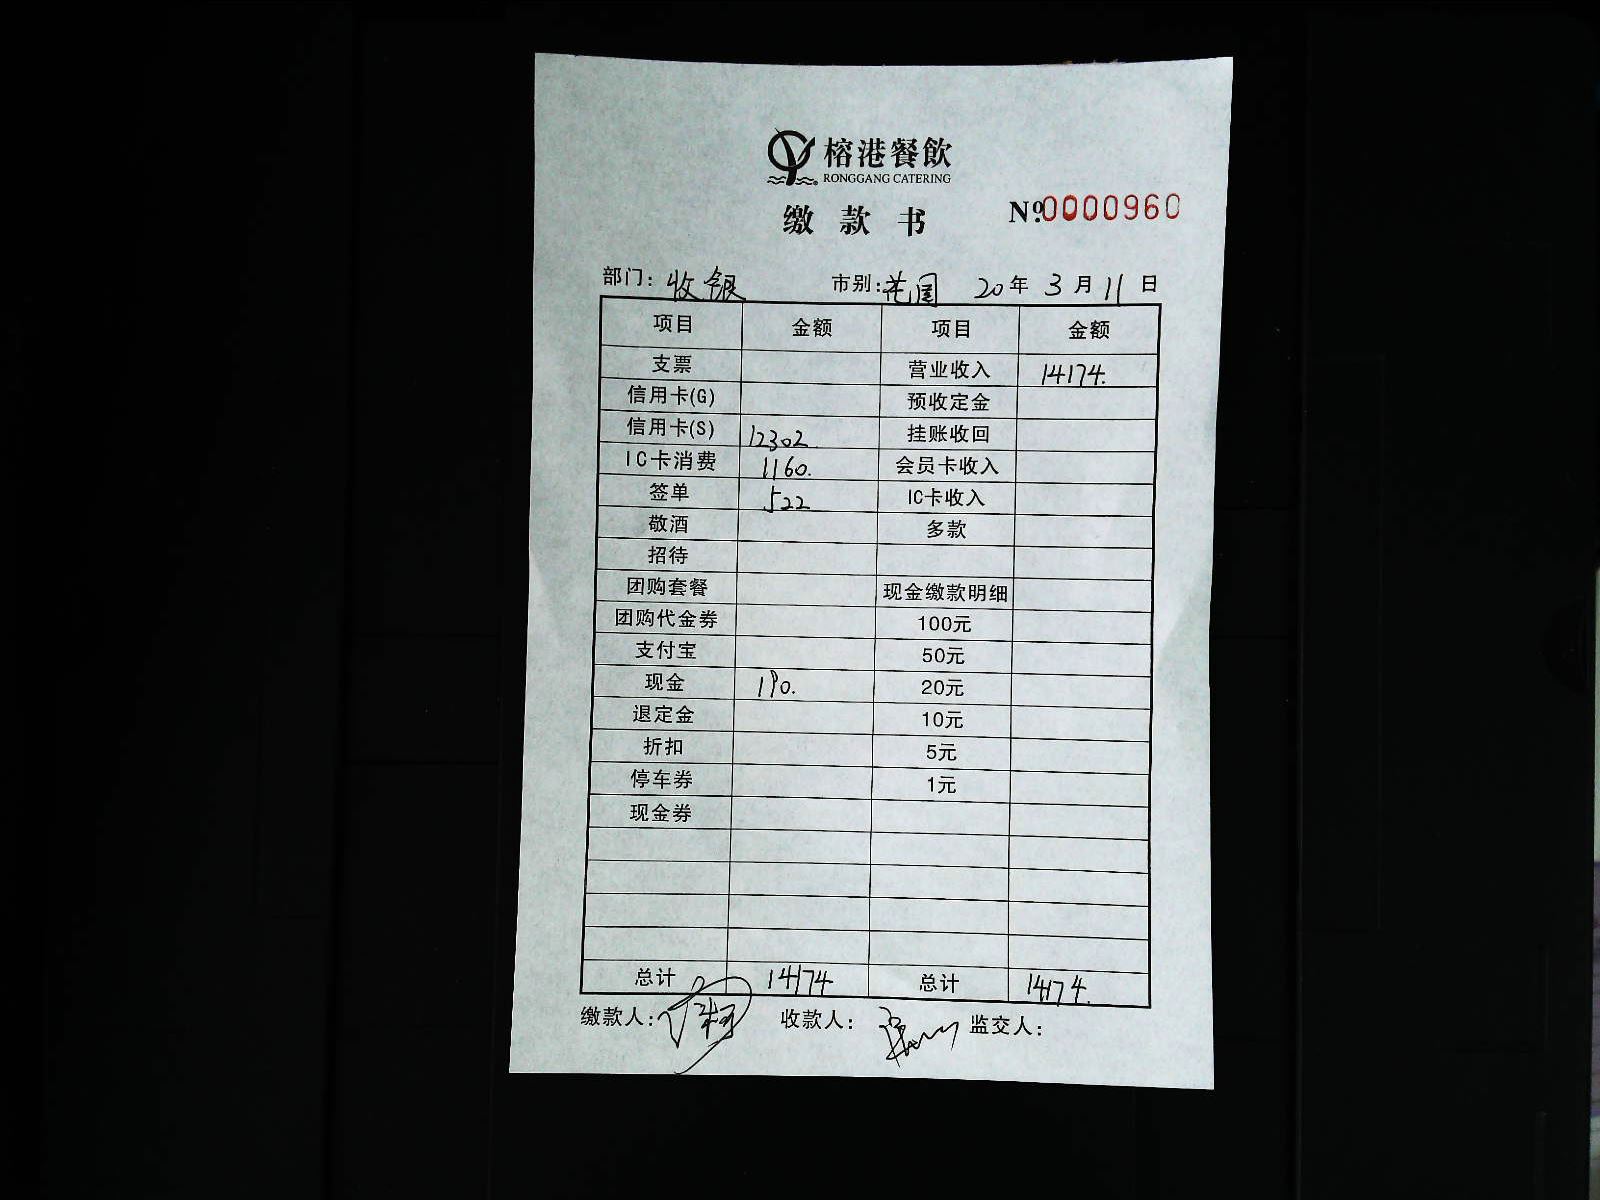 榕港餐飲
RONGGANG CATERING
缴款书 №0000960
部门：收银 市别：花园 20年3月11日
项目 金额 项目 金额
支票 营业收入 14174.
信用卡(G) 预收定金
信用卡(S) 12302. 挂账收回
IC卡消费 1160. 会员卡收入
签单 522 IC卡收入
敬酒 多款
招待
团购套餐 现金缴款明细
团购代金券 100元
支付宝 50元
现金 190. 20元
退定金 10元
折扣 5元
停车券 1元
现金券
总计 14174 总计 14174.
缴款人： 收款人： 监交人：